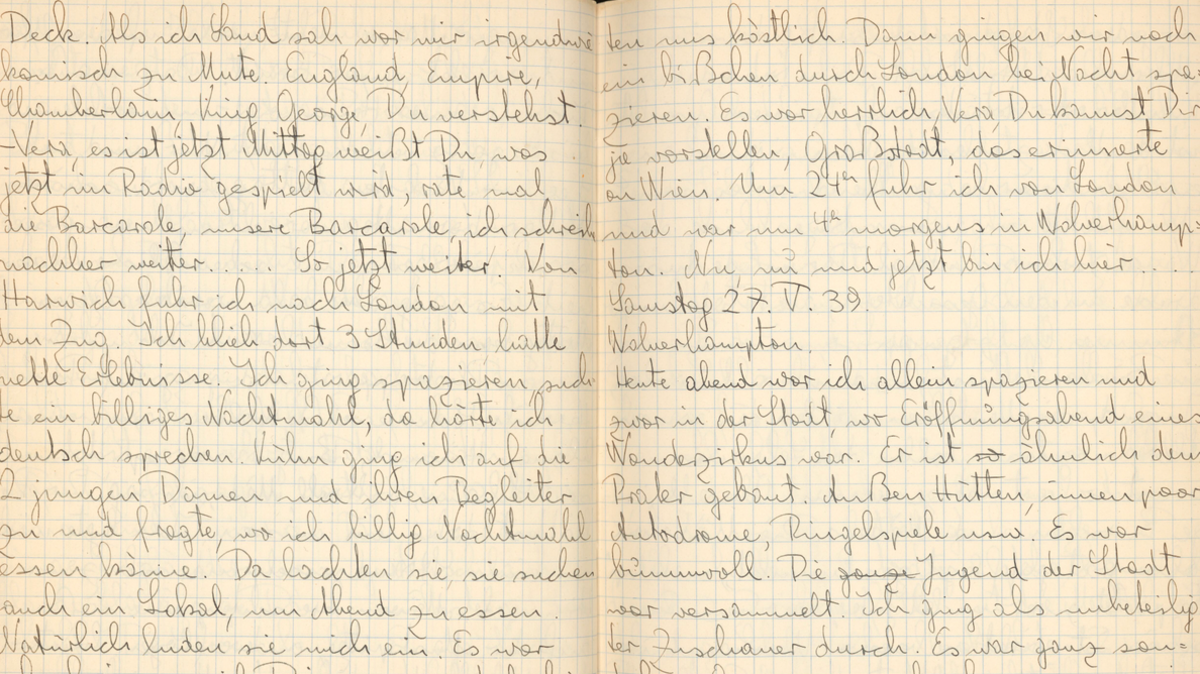 Deck. Als ich Land sah, war mir irgendwie
komisch zu Mute. England, Empire,
Chamberlain, King George, Du verstehst.
-Vera, es ist jetzt Mittag weißt Du, was
jetzt im Radio gespielt wird, rate mal
die Barcarole, unsere Barcarole, ich schreib
nachher weiter..... So jetzt weiter. Von
Harwich fuhr ich nach London mit
dem Zug. Ich blieb dort 3 Stunden, hatte
nette Erlebnisse. Ich ging spazieren, such
te ein billiges Nachtmahl, da hörte ich
deutsch sprechen. Kühn ging ich auf die
2 jungen Damen und ihren Begleiter
zu und fragte, wo ich billig Nachtmahl
essen könne. Da lachten sie, sie suchen
auch ein Lokal, um Abend zu essen.
Natürlich luden sie mich ein. Es war
ten uns köstlich. Dann gingen wir noch
ein bißchen durch London bei Nacht spa-
zieren. Es war herrlich, Vera, Du kannst Dir
je vorstellen, Großstadt, das erinnerte
an Wien. Um 24h fuhr ich von London
und war um 4h morgens in Wolverhamp=
ton. Nu, nu und jetzt bin ich hier....
Samstag 27. V. 39.
Wolverhampton.
Heute abend war ich allein spazieren und
zwar in der Stadt, wo Eröffnungsabend eines
Wanderzirkus war. Er ist so ähnlich dem
Prater gebaut. Außen Hütten, innen paar
Autodrome, Ringelspiele usw. Es war
bummvoll. Die ganze Jugend der Stadt
war versammelt. Ich ging als unbeteilig
ter Zuschauer durch. Es war ganz son=